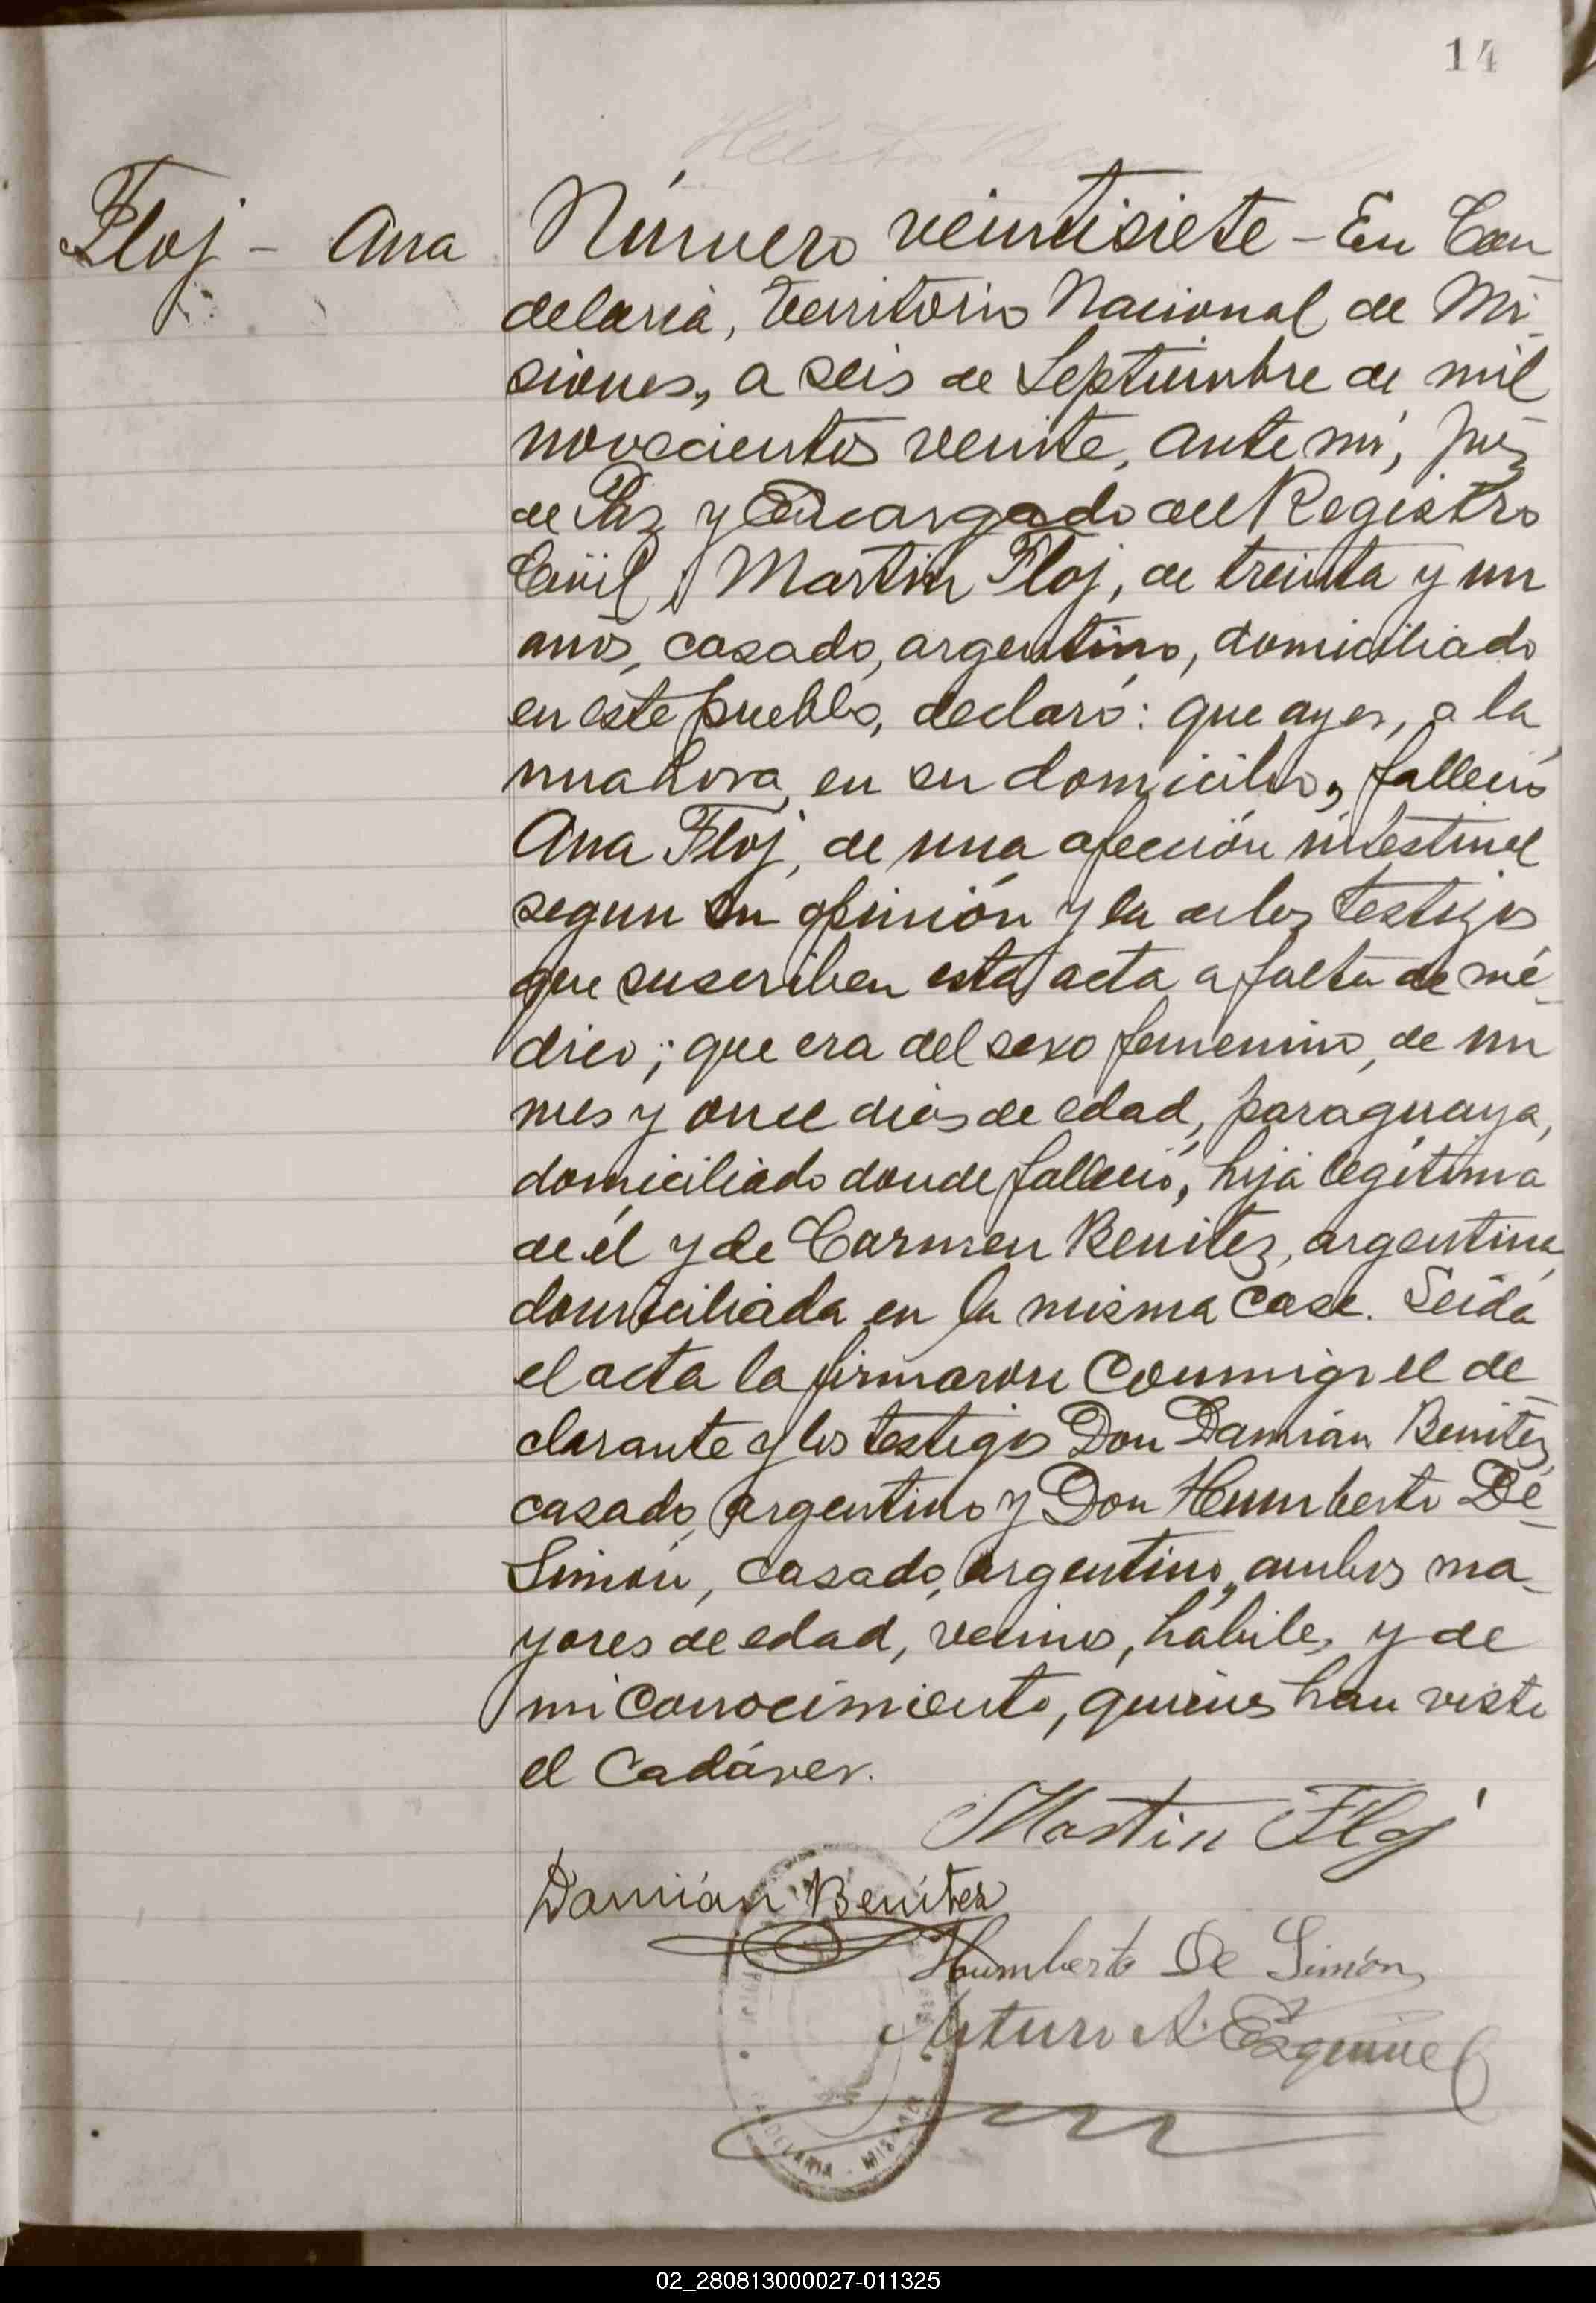 14
Floj - Ana
Número veintisiete - En Can
delaria, territorio Nacional de Mi-
siones, a seis de Septiembre de mil
novecientos veinte, ante mí, Juez
de Paz y Encargado del Registro
Civil, Martin Floj, de treinta y un
años, casado, argentino, domiciliado
en este pueblo, declaró: que ayer, a la
una hora, en su domicilio, falleció
Ana Floj, de una afección intestinal
segun su opinión y la de los testigos
que suscriben esta acta a falta de mé-
dico; que era del sexo femenino, de un
mes y once dias de edad, paraguaya,
domiciliado donde falleció, hija legítima
de él y de Carmen Benitez, argentina,
domiciliada en la misma casa. Leída
el acta la firmaron conmigo el de-
clarante y los testigos Don Damián Benitez,
casado, argentino y Don Humberto De-
Simón, casado, argentino, ambos ma-
yores de edad, vecinos, hábiles y de
mi conocimiento, quienes han visto
el cadáver.
Martin Floj
Damián Benítez
Humberto De Simón
Arturo A. Esquivel
CANDELARIA - MISIONES
02_280813000027-011325